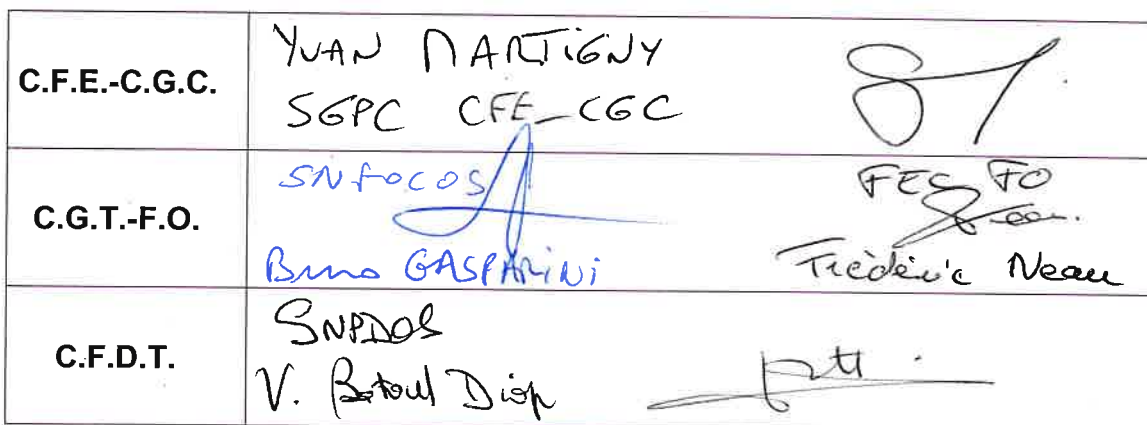 C.F.E.-C.G.C.
YVAN MARTIGNY
SGPC CFE-CGC
C.G.T.-F.O.
SNFOCOS
Bruno GASPARINI
FEC FO
Frédéric Neau
C.F.D.T.
SNPDOS
V. Batoul Diop